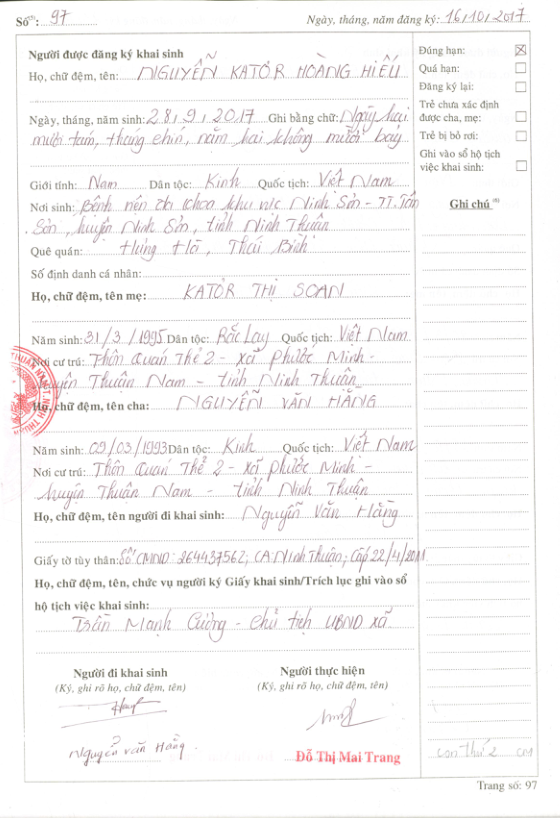 Số⁽⁵⁾: 97 Ngày, tháng, năm đăng ký: 16/10/2017
Người được đăng ký khai sinh
Họ, chữ đệm, tên: NGUYỄN KATƠR HOÀNG HIẾU
Ngày, tháng, năm sinh: 28, 9, 2017 Ghi bằng chữ: Ngày hai
mươi tám, tháng chín, năm hai không mười bảy
Giới tính: Nam Dân tộc: Kinh Quốc tịch: Việt Nam
Nơi sinh: Bệnh viện đa khoa khu vực Ninh Sơn - TT. Tân
Sơn, huyện Ninh Sơn, tỉnh Ninh Thuận
Quê quán: Hưng Hà, Thái Bình
Số định danh cá nhân:
Họ, chữ đệm, tên mẹ: KATƠR THỊ SOAN
Năm sinh: 31/3/1995 Dân tộc: Răc Lay Quốc tịch: Việt Nam
Nơi cư trú: Thôn Quán Thẻ 2 - xã Phước Minh -
huyện Thuận Nam - tỉnh Ninh Thuận
Họ, chữ đệm, tên cha: NGUYỄN VĂN HẰNG
Năm sinh: 09/03/1993 Dân tộc: Kinh Quốc tịch: Việt Nam
Nơi cư trú: Thôn Quán Thẻ 2 - xã Phước Minh -
huyện Thuận Nam - tỉnh Ninh Thuận
Họ, chữ đệm, tên người đi khai sinh: Nguyễn Văn Hằng
Giấy tờ tùy thân: Số CMND: 264437562; CA: Ninh Thuận; Cấp 22/4/2011
Họ, chữ đệm, tên, chức vụ người ký Giấy khai sinh/Trích lục ghi vào sổ
hộ tịch việc khai sinh:
Trần Mạnh Cường - Chủ tịch UBND xã
Người đi khai sinh
(Ký, ghi rõ họ, chữ đệm, tên)
Nguyễn Văn Hằng
Người thực hiện
(Ký, ghi rõ họ, chữ đệm, tên)
Đỗ Thị Mai Trang
Đúng hạn: X
Quá hạn:
Đăng ký lại:
Trẻ chưa xác định
được cha, mẹ:
Trẻ bị bỏ rơi:
Ghi vào sổ hộ tịch
việc khai sinh:
Ghi chú ⁽⁶⁾
con thứ 2 CM
Trang số: 97